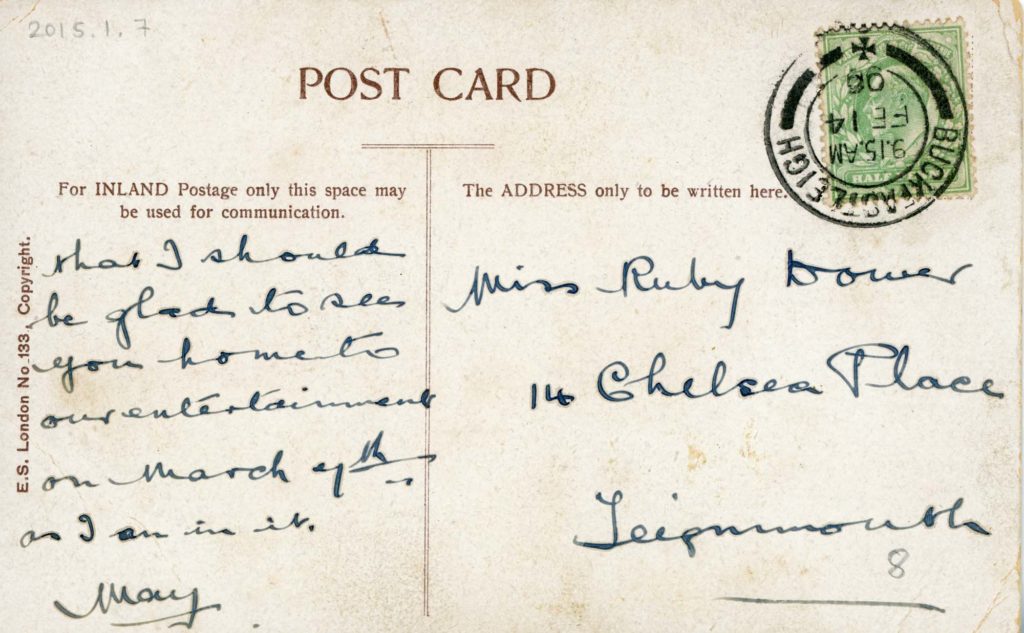 2015.1.7
POST CARD
For INLAND Postage only this space may
be used for communication.
The ADDRESS only to be written here.
BUCKFASTLEIGH
9.15.AM
FE 14
06
HALF
E.S. London No 133, Copyright.
that I should
be glad to see
you home to
our entertainment
on March
as I am in it.
May
Miss Ruby
14 Chelsea Place
Teignmouth
8